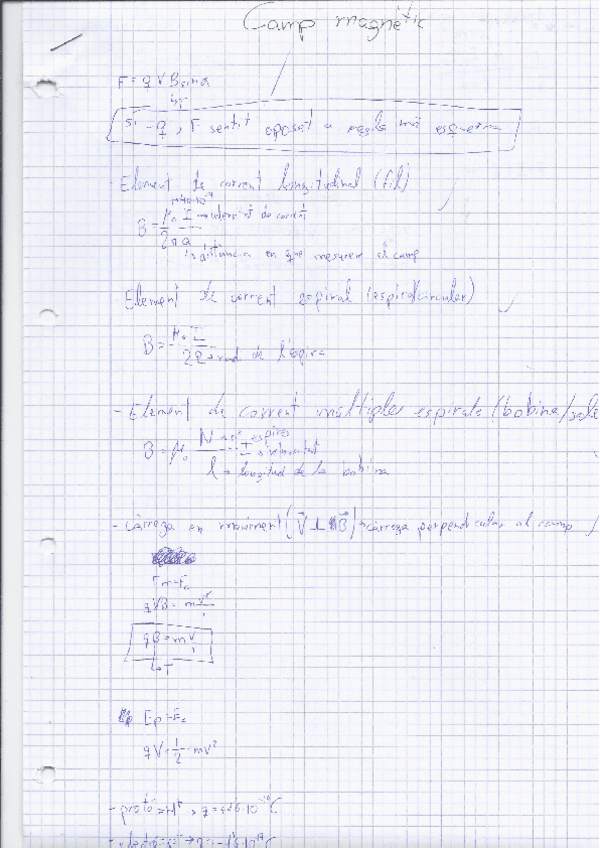 Camp magnètic
F = q V B sin α
↳ T
si -q, F sentit oposat a regla mà esquerra
- Element de corrent longitudinal (fil)
B = μ₀ I → intensitat de corrent
2π a
↳ distància en que mesurem el camp
- Element de corrent espiral (espira circular)
B = μ₀ I
2R → rad de l'espira
- Element de corrent múltiples espirals (bobina/sole
B = μ₀ N → nº espires · I → intensitat
l → longitud de la bobina
- Càrrega en moviment (V⃗ ⊥ B⃗) → càrrega perpendicular al camp
Fm = Fc
qVB = m v²/r
qB = m v/r
↳ T
Ep = Ec
qV = 1/2 · mv²
- protó = H⁺ →